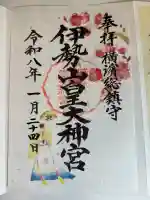 奉拝 横濱総鎮守
伊勢山皇大神宮
令和八年一月二十四日